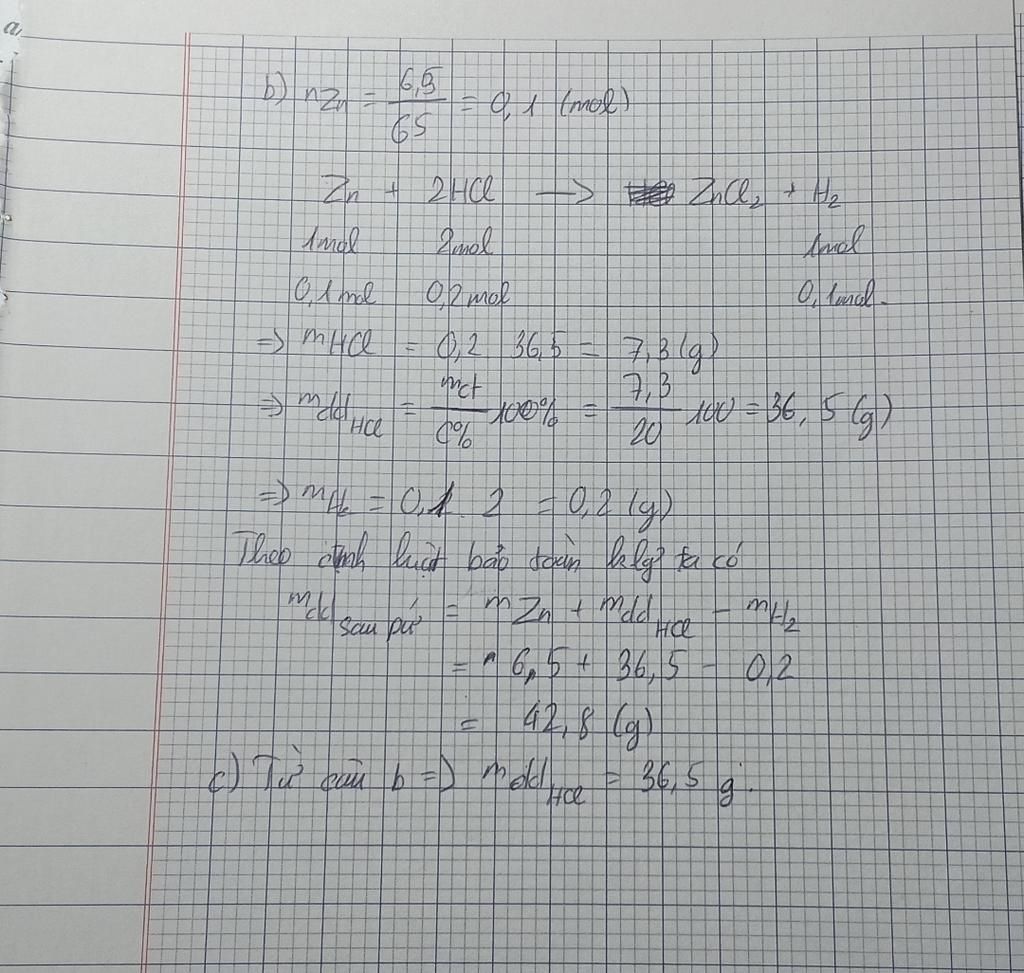 a
b) nZn = 6,5/65 = 0,1 (mol)
Zn + 2HCl → ZnCl2 + H2
1mol 2mol 1mol
0,1mol 0,2mol 0,1mol.
=> mHCl = 0,2 36,5 = 7,3 (g)
=> mddHCl = mct/C% 100% = 7,3/20 100 = 36,5 (g)
=> mH2 = 0,1. 2 = 0,2 (g)
Theo định luật bảo toàn klg ta có
mdd sau pứ = mZn + mddHCl - mH2
= 6,5 + 36,5 - 0,2
= 42,8 (g)
c) Từ câu b => mddHCl = 36,5 g.